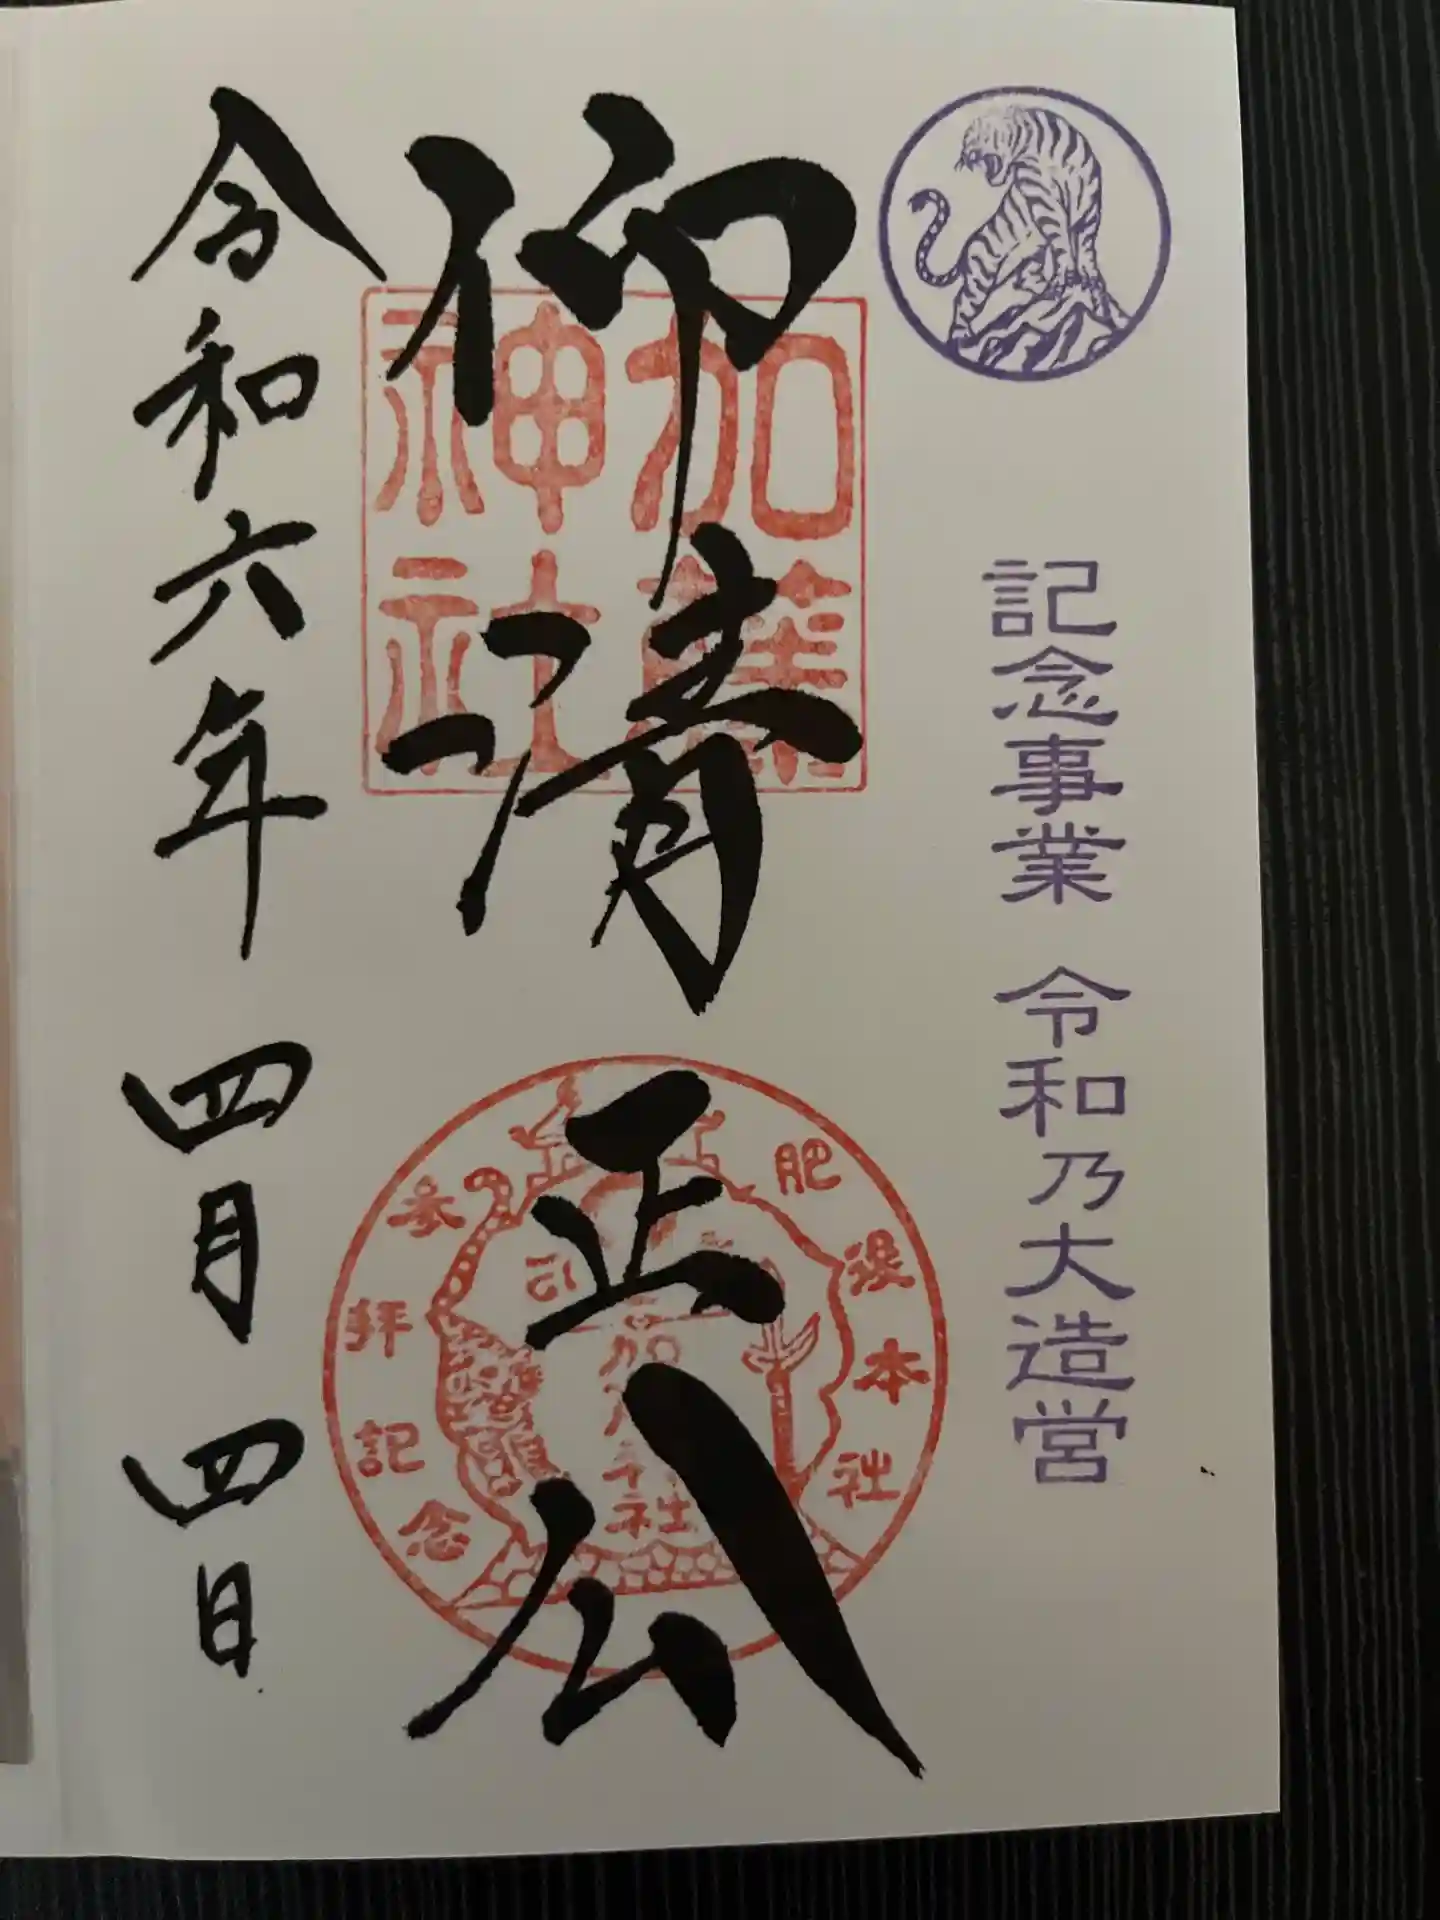 記念事業 令和乃大造営
仰清正公
加藤
神社
肥後本社
参拝記念
加藤神社
令和六年 四月 四日